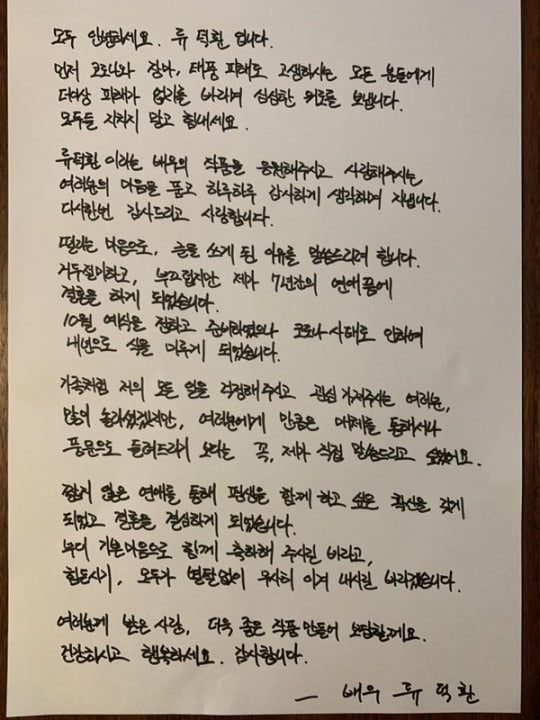 모두 안녕하세요. 류 덕환 입니다.
먼저 코로나와 장마, 태풍 피해로 고생하시는 모든 분들에게
더이상 피해가 없길를 바라며 심심한 위로를 보냅니다.
모두들 지치지 말고 힘내세요.
류덕환 이라는 배우의 작품을 응원해주시고 사랑해주시는
여러분의 마음을 품고 하루하루 감사하게 생각하며 지냅니다.
다시한번 감사드리고 사랑합니다.
떨리는 마음으로, 글을 쓰게 된 이유를 말씀드리려 합니다.
거두절미하고, 부끄럽지만 제가 7년간의 연애끝에
결혼을 하게 되었습니다.
10월 예식을 정하고 준비하였으나 코로나 사태로 인하여
내년으로 식을 미루게 되었습니다.
가족처럼 저의 모든 일을 걱정해주시고 관심 가져주시는 여러분,
많이 놀라셨겠지만, 여러분에게 만큼은 매체를 통해서나
풍문으로 들려드리기 보다는 꼭, 제가 직접 말씀드리고 싶었어요.
짧지 않은 연애를 통해 평생을 함께 하고 싶은 확신을 갖게
되었고 결혼을 결심하게 되었습니다.
부디 기쁜마음으로 함께 축하해 주시길 바라고,
힘든시기, 모두가 별탈없이 무사히 이겨 내시길 바라겠습니다.
여러분께 받은 사랑, 더욱 좋은 작품 만들어 보답할게요.
건강하시고 행복하세요. 감사합니다.
— 배우 류 덕 환